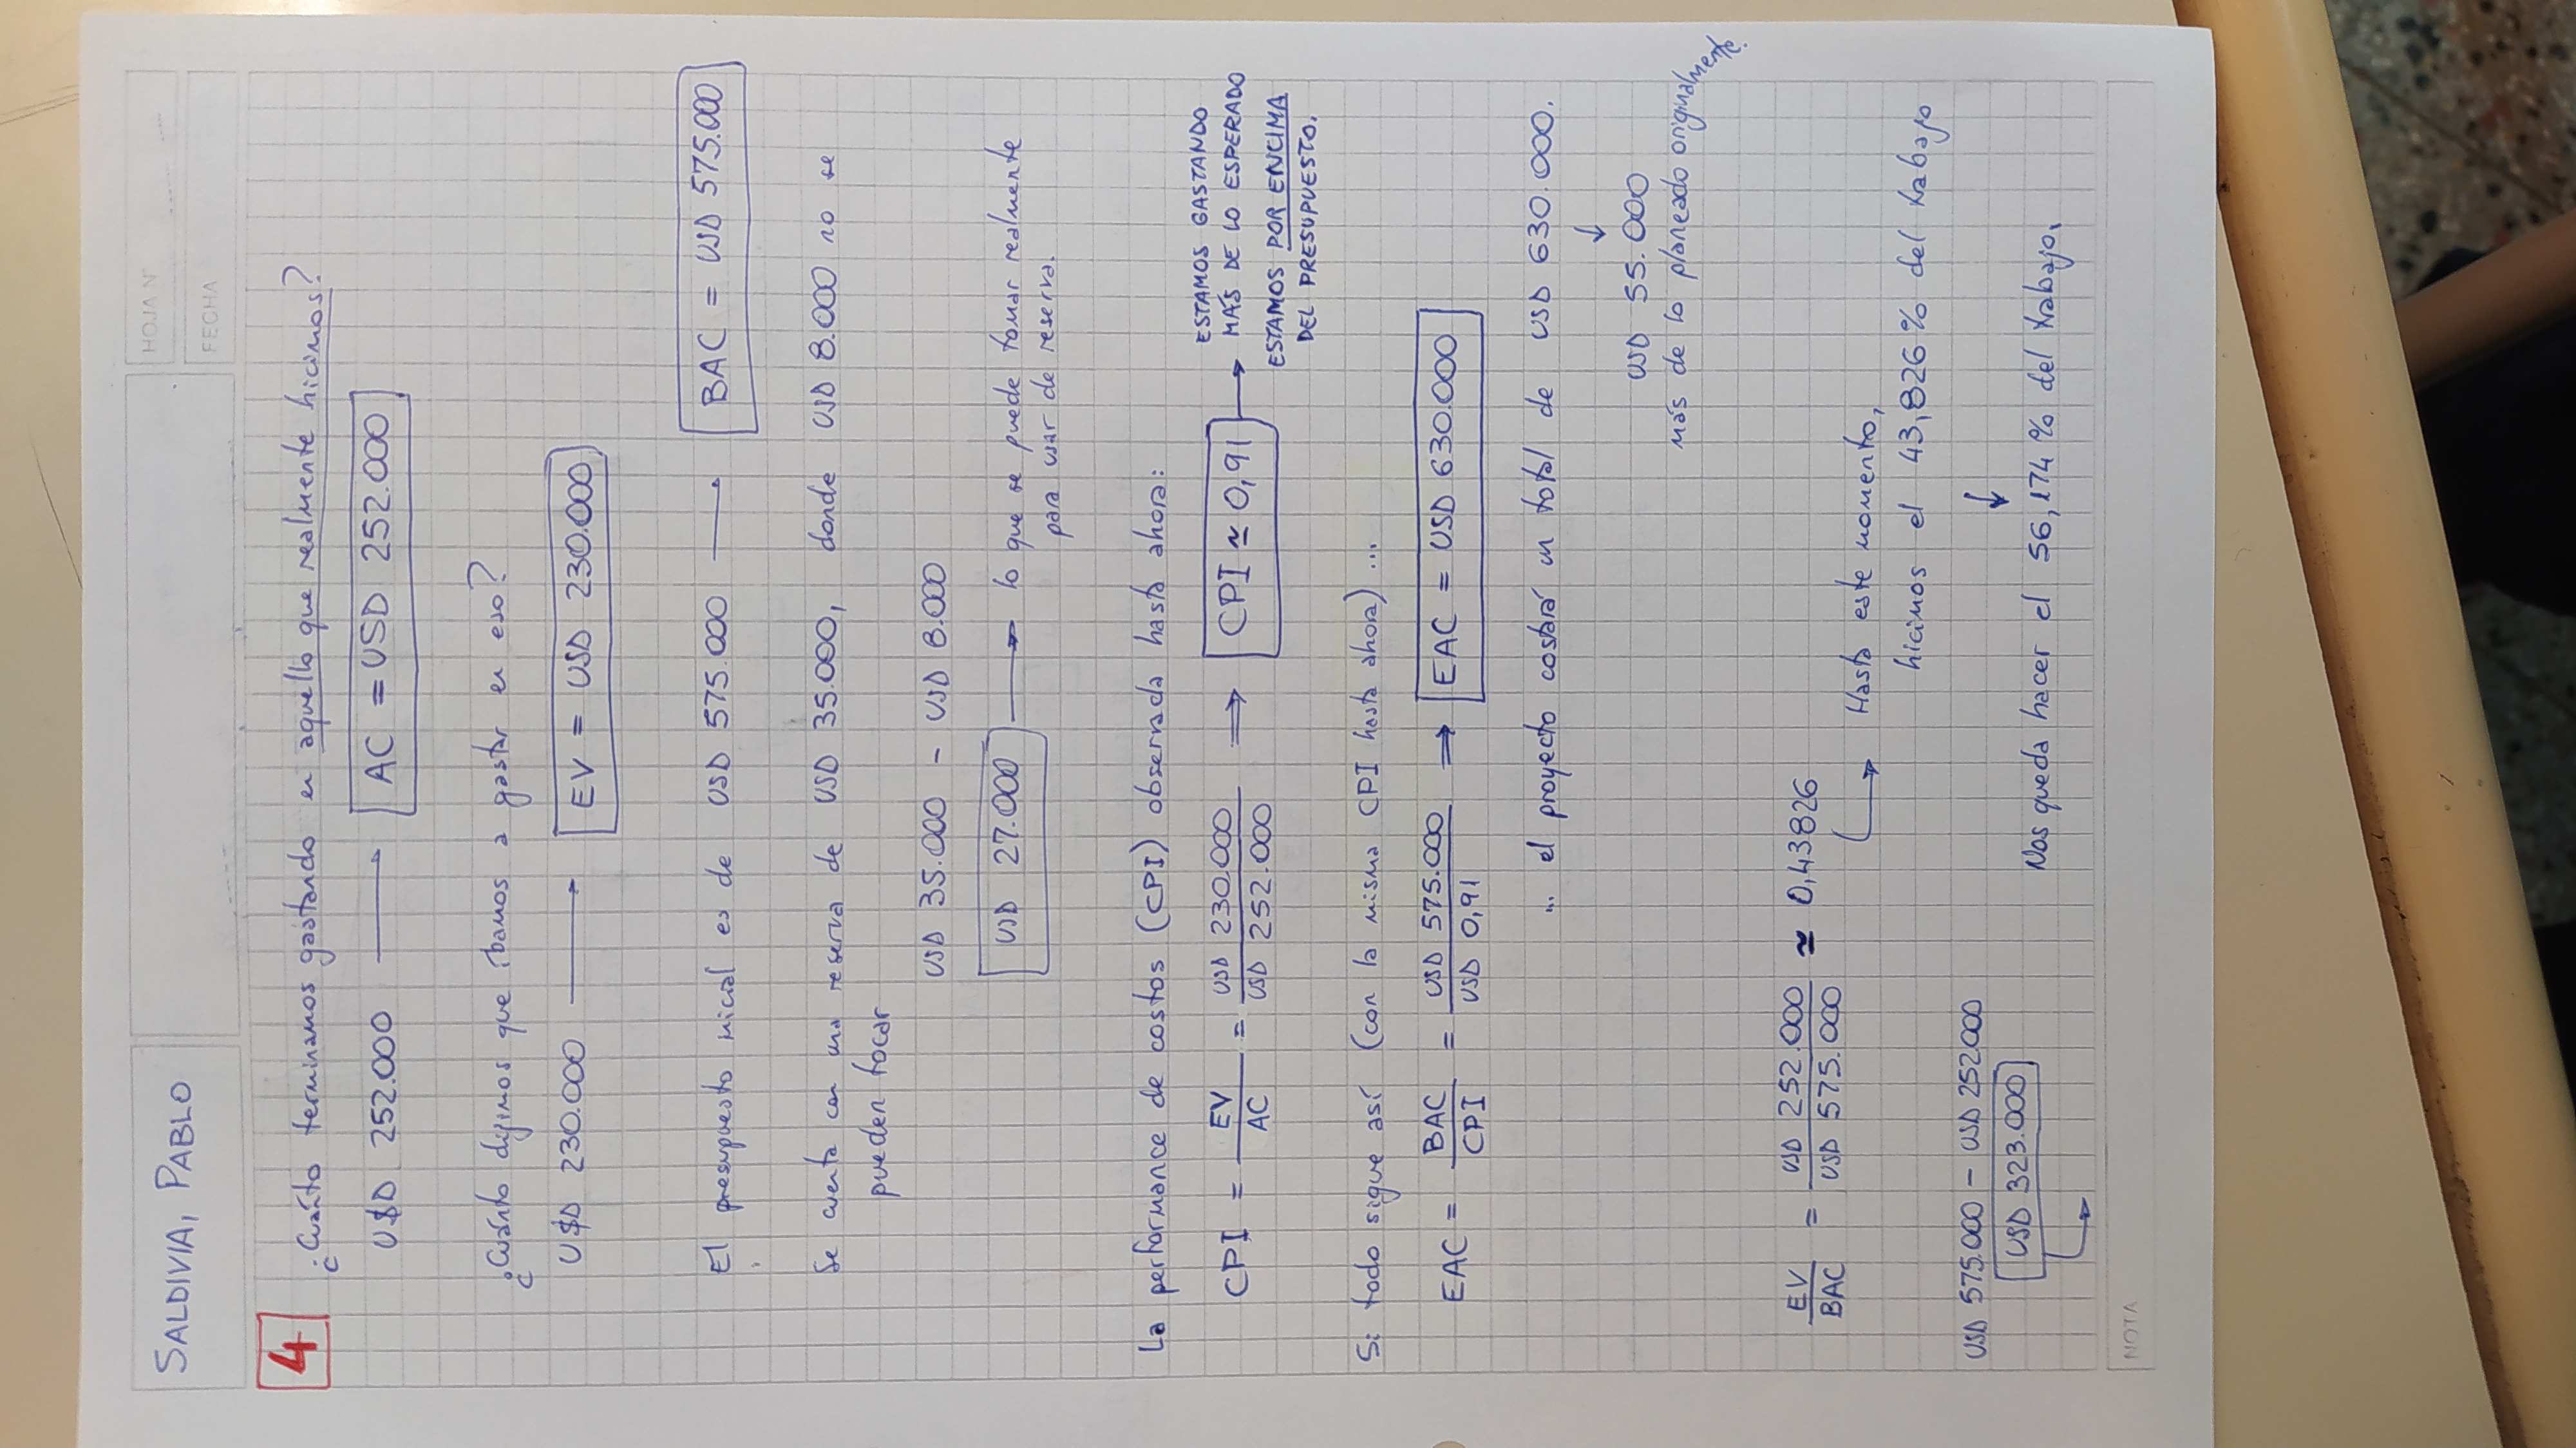 SALDIVIA, PABLO
HOJA N°
FECHA
4
¿Cuánto terminamos gastando en aquello que realmente hicimos?
U$D 252.000 → AC = USD 252.000
¿Cuánto dijimos que íbamos a gastar en eso?
U$D 230.000 → EV = USD 230.000
El presupuesto inicial es de USD 575.000 → BAC = USD 575.000
Se cuenta con una reserva de USD 35.000, donde USD 8.000 no se
pueden tocar
USD 35.000 - USD 8.000
USD 27.000 → lo que se puede tomar realmente
para usar de reserva.
La performance de costos (CPI) observada hasta ahora:
CPI = EV / AC = USD 230.000 / USD 252.000 ⇒ CPI ≃ 0,91 →
ESTAMOS GASTANDO
MÁS DE LO ESPERADO
ESTAMOS POR ENCIMA
DEL PRESUPUESTO.
Si todo sigue así (con la misma CPI hasta ahora) ...
EAC = BAC / CPI = USD 575.000 / USD 0,91 ⇒ EAC = USD 630.000
... el proyecto costará un total de USD 630.000.
↓
USD 55.000
más de lo planeado originalmente.
EV / BAC = USD 252.000 / USD 575.000 ≃ 0,43826
Hasta este momento,
hicimos el 43,826% del trabajo
↓
Nos queda hacer el 56,174% del trabajo.
USD 575.000 - USD 252000
USD 323.000
NOTA